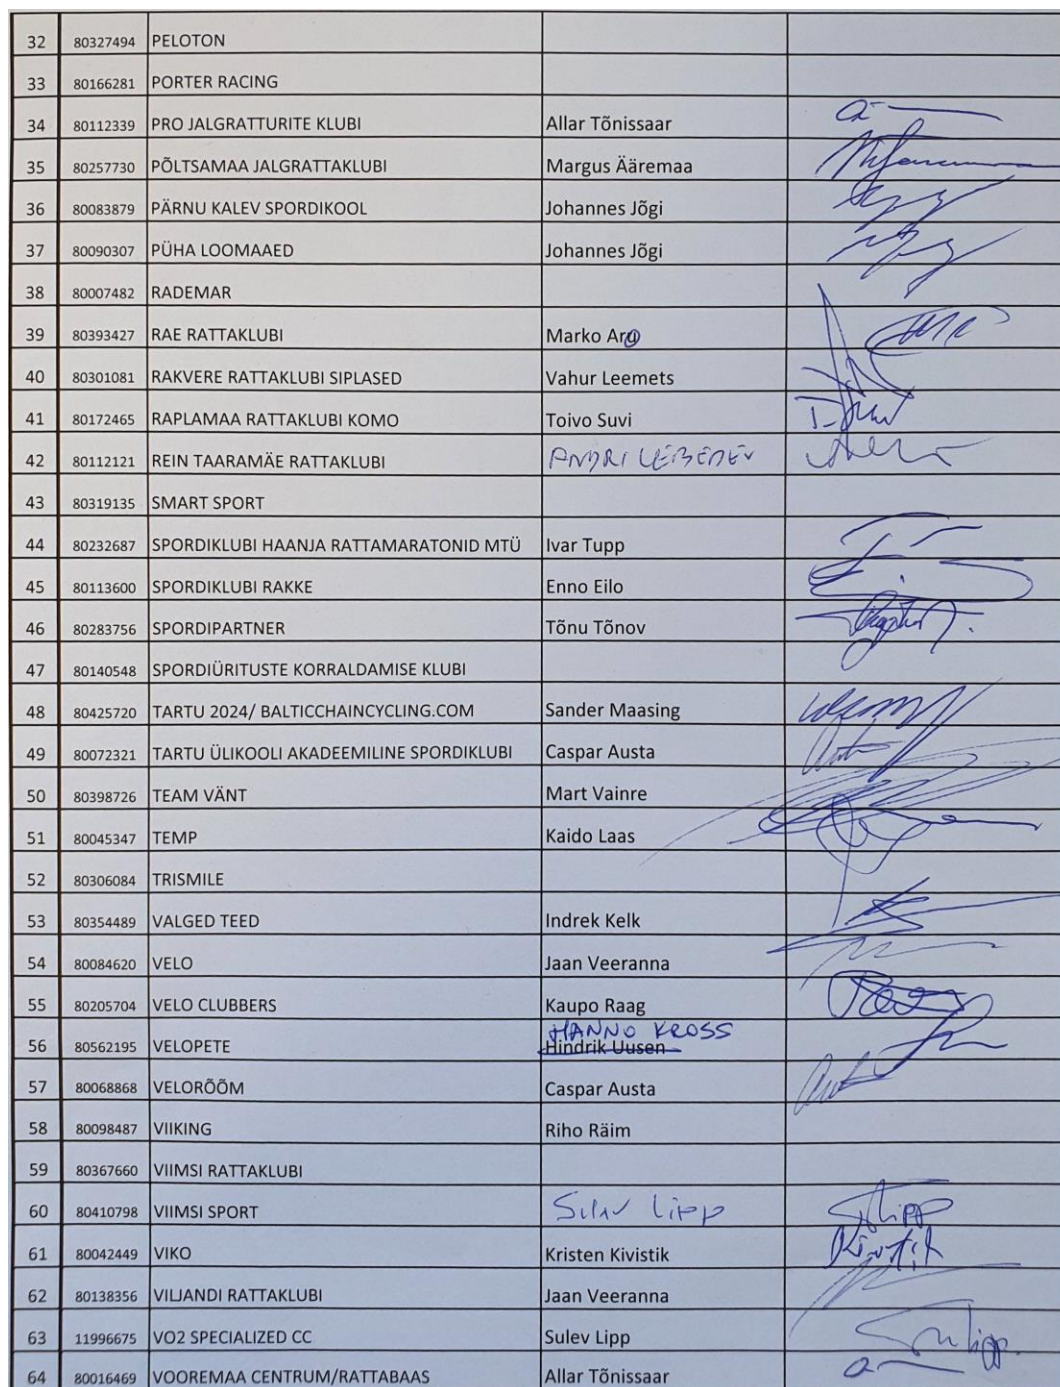 32 80327494 PELOTON
33 80166281 PORTER RACING
34 80112339 PRO JALGRATTURITE KLUBI Allar Tõnissaar
35 80257730 PÕLTSAMAA JALGRATTAKLUBI Margus Ääremaa
36 80083879 PÄRNU KALEV SPORDIKOOL Johannes Jõgi
37 80090307 PÜHA LOOMAAED Johannes Jõgi
38 80007482 RADEMAR
39 80393427 RAE RATTAKLUBI Marko
40 80301081 RAKVERE RATTAKLUBI SIPLASED Vahur Leemets
41 80172465 RAPLAMAA RATTAKLUBI KOMO Toivo Suvi
42 80112121 REIN TAARAMÄE RATTAKLUBI ANDRI LEBEDEV
43 80319135 SMART SPORT
44 80232687 SPORDIKLUBI HAANJA RATTAMARATONID MTÜ Ivar Tupp
45 80113600 SPORDIKLUBI RAKKE Enno Eilo
46 80283756 SPORDIPARTNER Tõnu Tõnov
47 80140548 SPORDIÜRITUSTE KORRALDAMISE KLUBI
48 80425720 TARTU 2024/ BALTICCHAINCYCLING.COM Sander Maasing
49 80072321 TARTU ÜLIKOOLI AKADEEMILINE SPORDIKLUBI Caspar Austa
50 80398726 TEAM VÄNT Mart Vainre
51 80045347 TEMP Kaido Laas
52 80306084 TRISMILE
53 80354489 VALGED TEED Indrek Kelk
54 80084620 VELO Jaan Veeranna
55 80205704 VELO CLUBBERS Kaupo Raag
HANNO KROSS
56 80562195 VELOPETE Hindrik Uusen
57 80068868 VELORÕÕM Caspar Austa
58 80098487 VIIKING Riho Räim
59 80367660 VIIMSI RATTAKLUBI
60 80410798 VIIMSI SPORT Sulev Lipp SLipp
61 80042449 VIKO Kristen Kivistik Kivistik
62 80138356 VILJANDI RATTAKLUBI Jaan Veeranna
63 11996675 VO2 SPECIALIZED CC Sulev Lipp
64 80016469 VOOREMAA CENTRUM/RATTABAAS Allar Tõnissaar